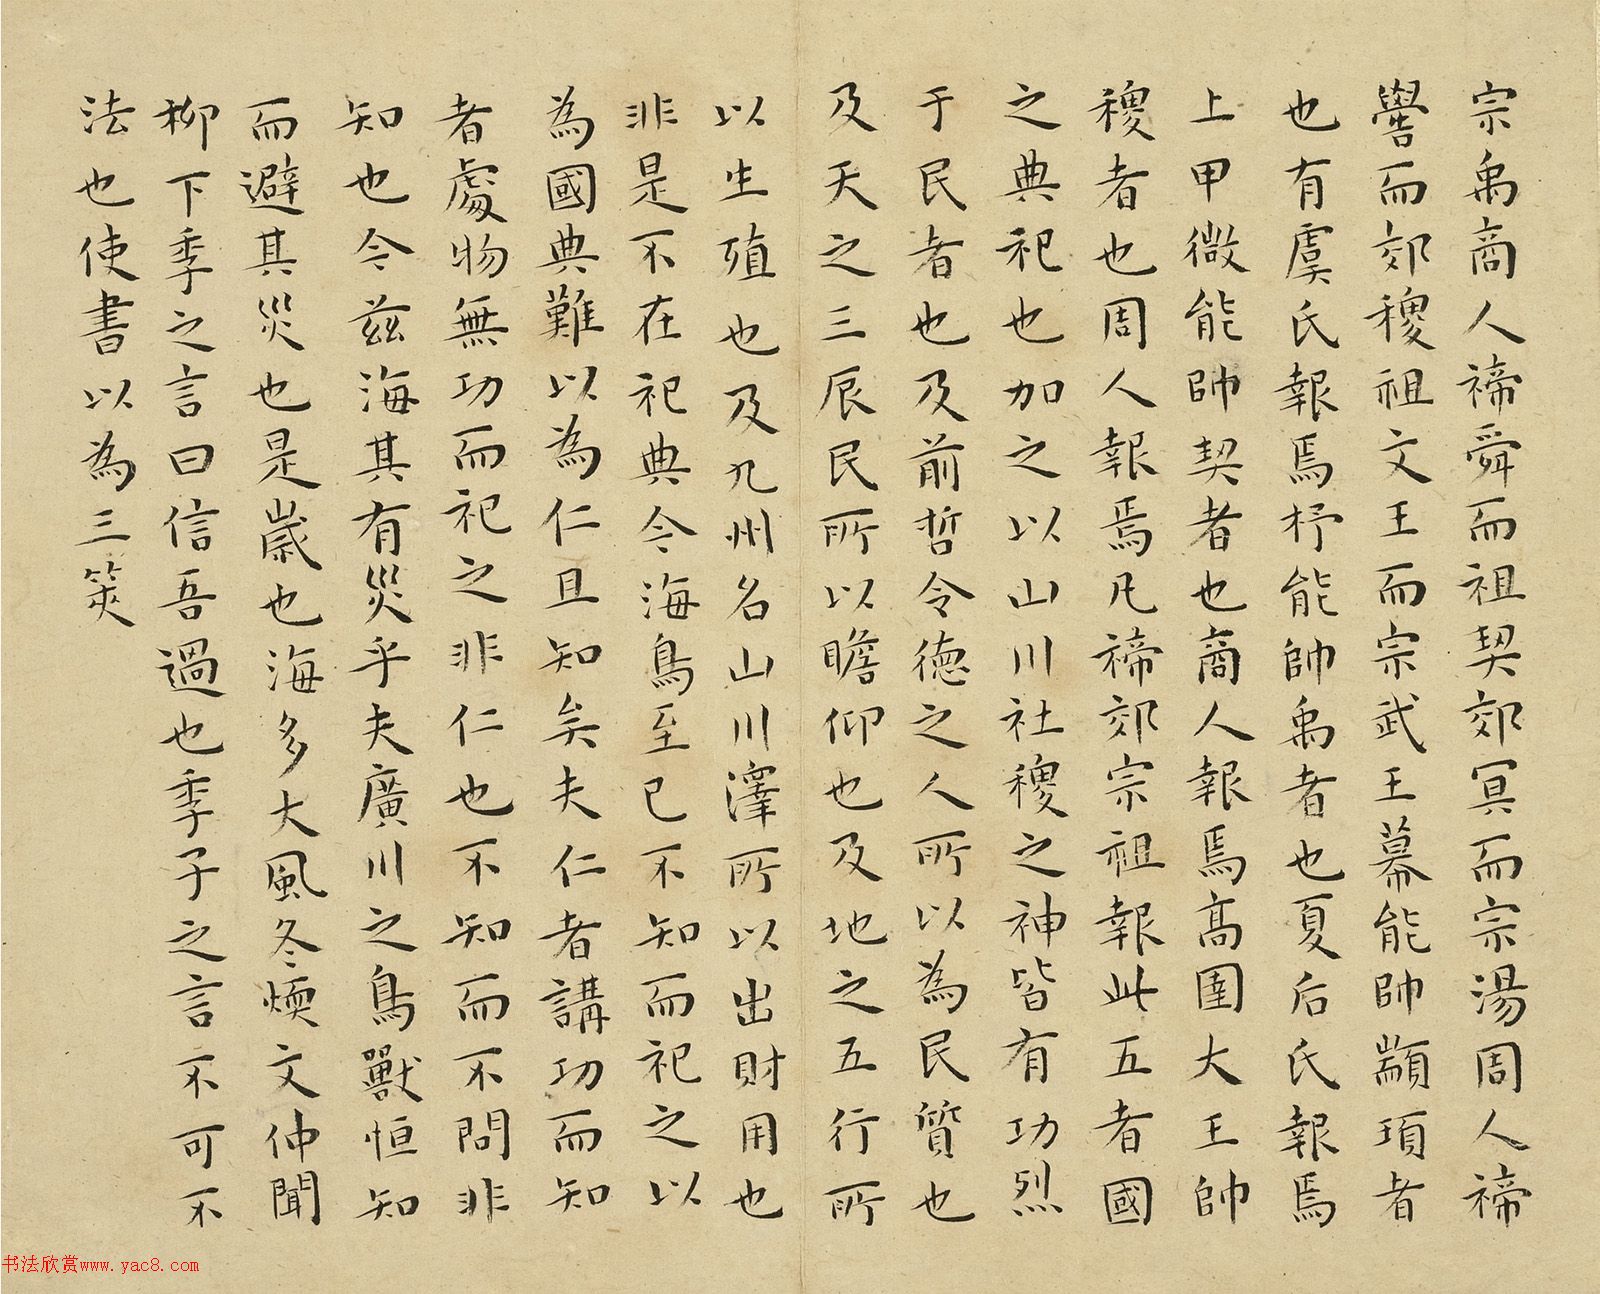 宗禹商人禘舜而祖契郊冥而宗湯周人禘
嚳而郊稷祖文王而宗武王幕能帥顓頊者
也有虞氏報焉杼能帥禹者也夏后氏報焉
上甲微能帥契者也商人報焉高圉大王帥
稷者也周人報焉凡禘郊宗祖報此五者國
之典祀也加之以山川社稷之神皆有功烈
于民者也及前哲令德之人所以為民質也
及天之三辰民所以瞻仰也及地之五行所
以生殖也及九州名山川澤所以出財用也
非是不在祀典今海鳥至已不知而祀之以
為國典難以為仁且知矣夫仁者講功而知
者處物無功而祀之非仁也不知而不問非
知也今茲海其有災乎夫廣川之鳥獸恒知
而避其災也是歲也海多大風冬煖文仲聞
柳下季之言曰信吾過也季子之言不可不
法也使書以為三筴
书法欣赏www.yac8.com